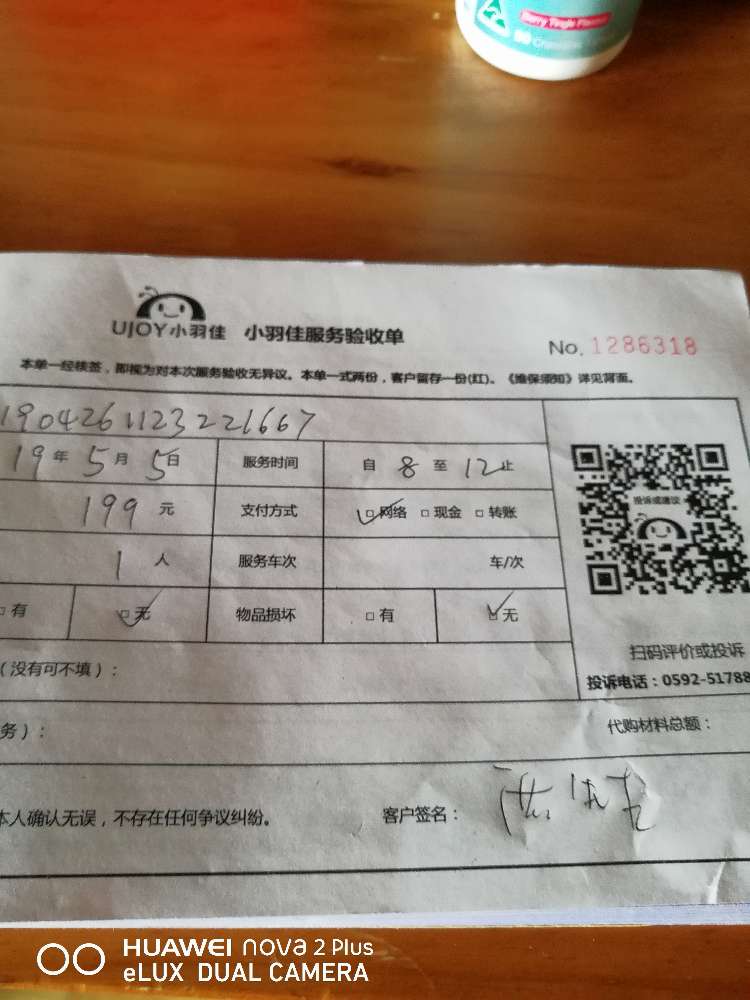 Berry Tingle Flavour
90
UJOY小羽佳 小羽佳服务验收单
No. 1286318
本单一经核签，即视为对本次服务验收无异议。本单一式两份，客户留存一份(红)。《维保须知》详见背面。
1904261123221667
19年5月5日 服务时间 自 8 至 12 止
199 元 支付方式 □网络 □现金 □转账
投诉或建议
1 人 服务车次 车/次
□有 □无 物品损坏 □有 □无
扫码评价或投诉
（没有可不填）：
投诉电话：0592-51788
务）： 代购材料总额：
本人确认无误，不存在任何争议纠纷。 客户签名：
HUAWEI nova 2 Plus
eLUX DUAL CAMERA